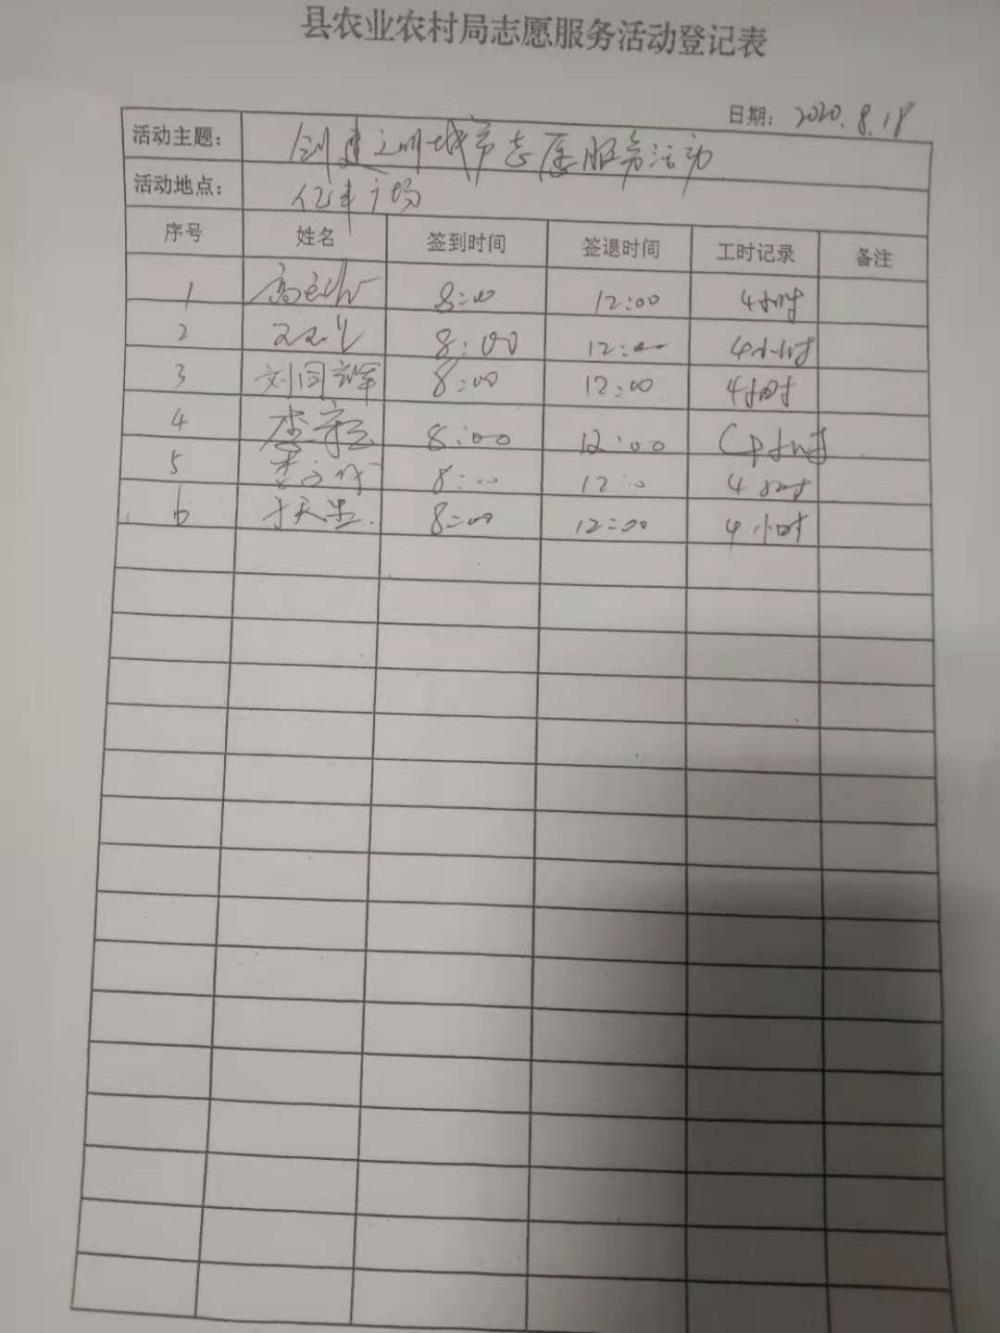 县农业农村局志愿服务活动登记表
日期： 2020.8.18
活动主题： 创建文明城市志愿服务活动
活动地点： 亿丰广场
序号 姓名 签到时间 签退时间 工时记录 备注
1 8:00 12:00 4小时
2 8:00 12:00 4小时
3 刘同辉 8:00 12:00 4小时
4 李 8:00 12:00 4小时
5 李文 8:00 12:00 4小时
6 于天 8:00 12:00 4小时